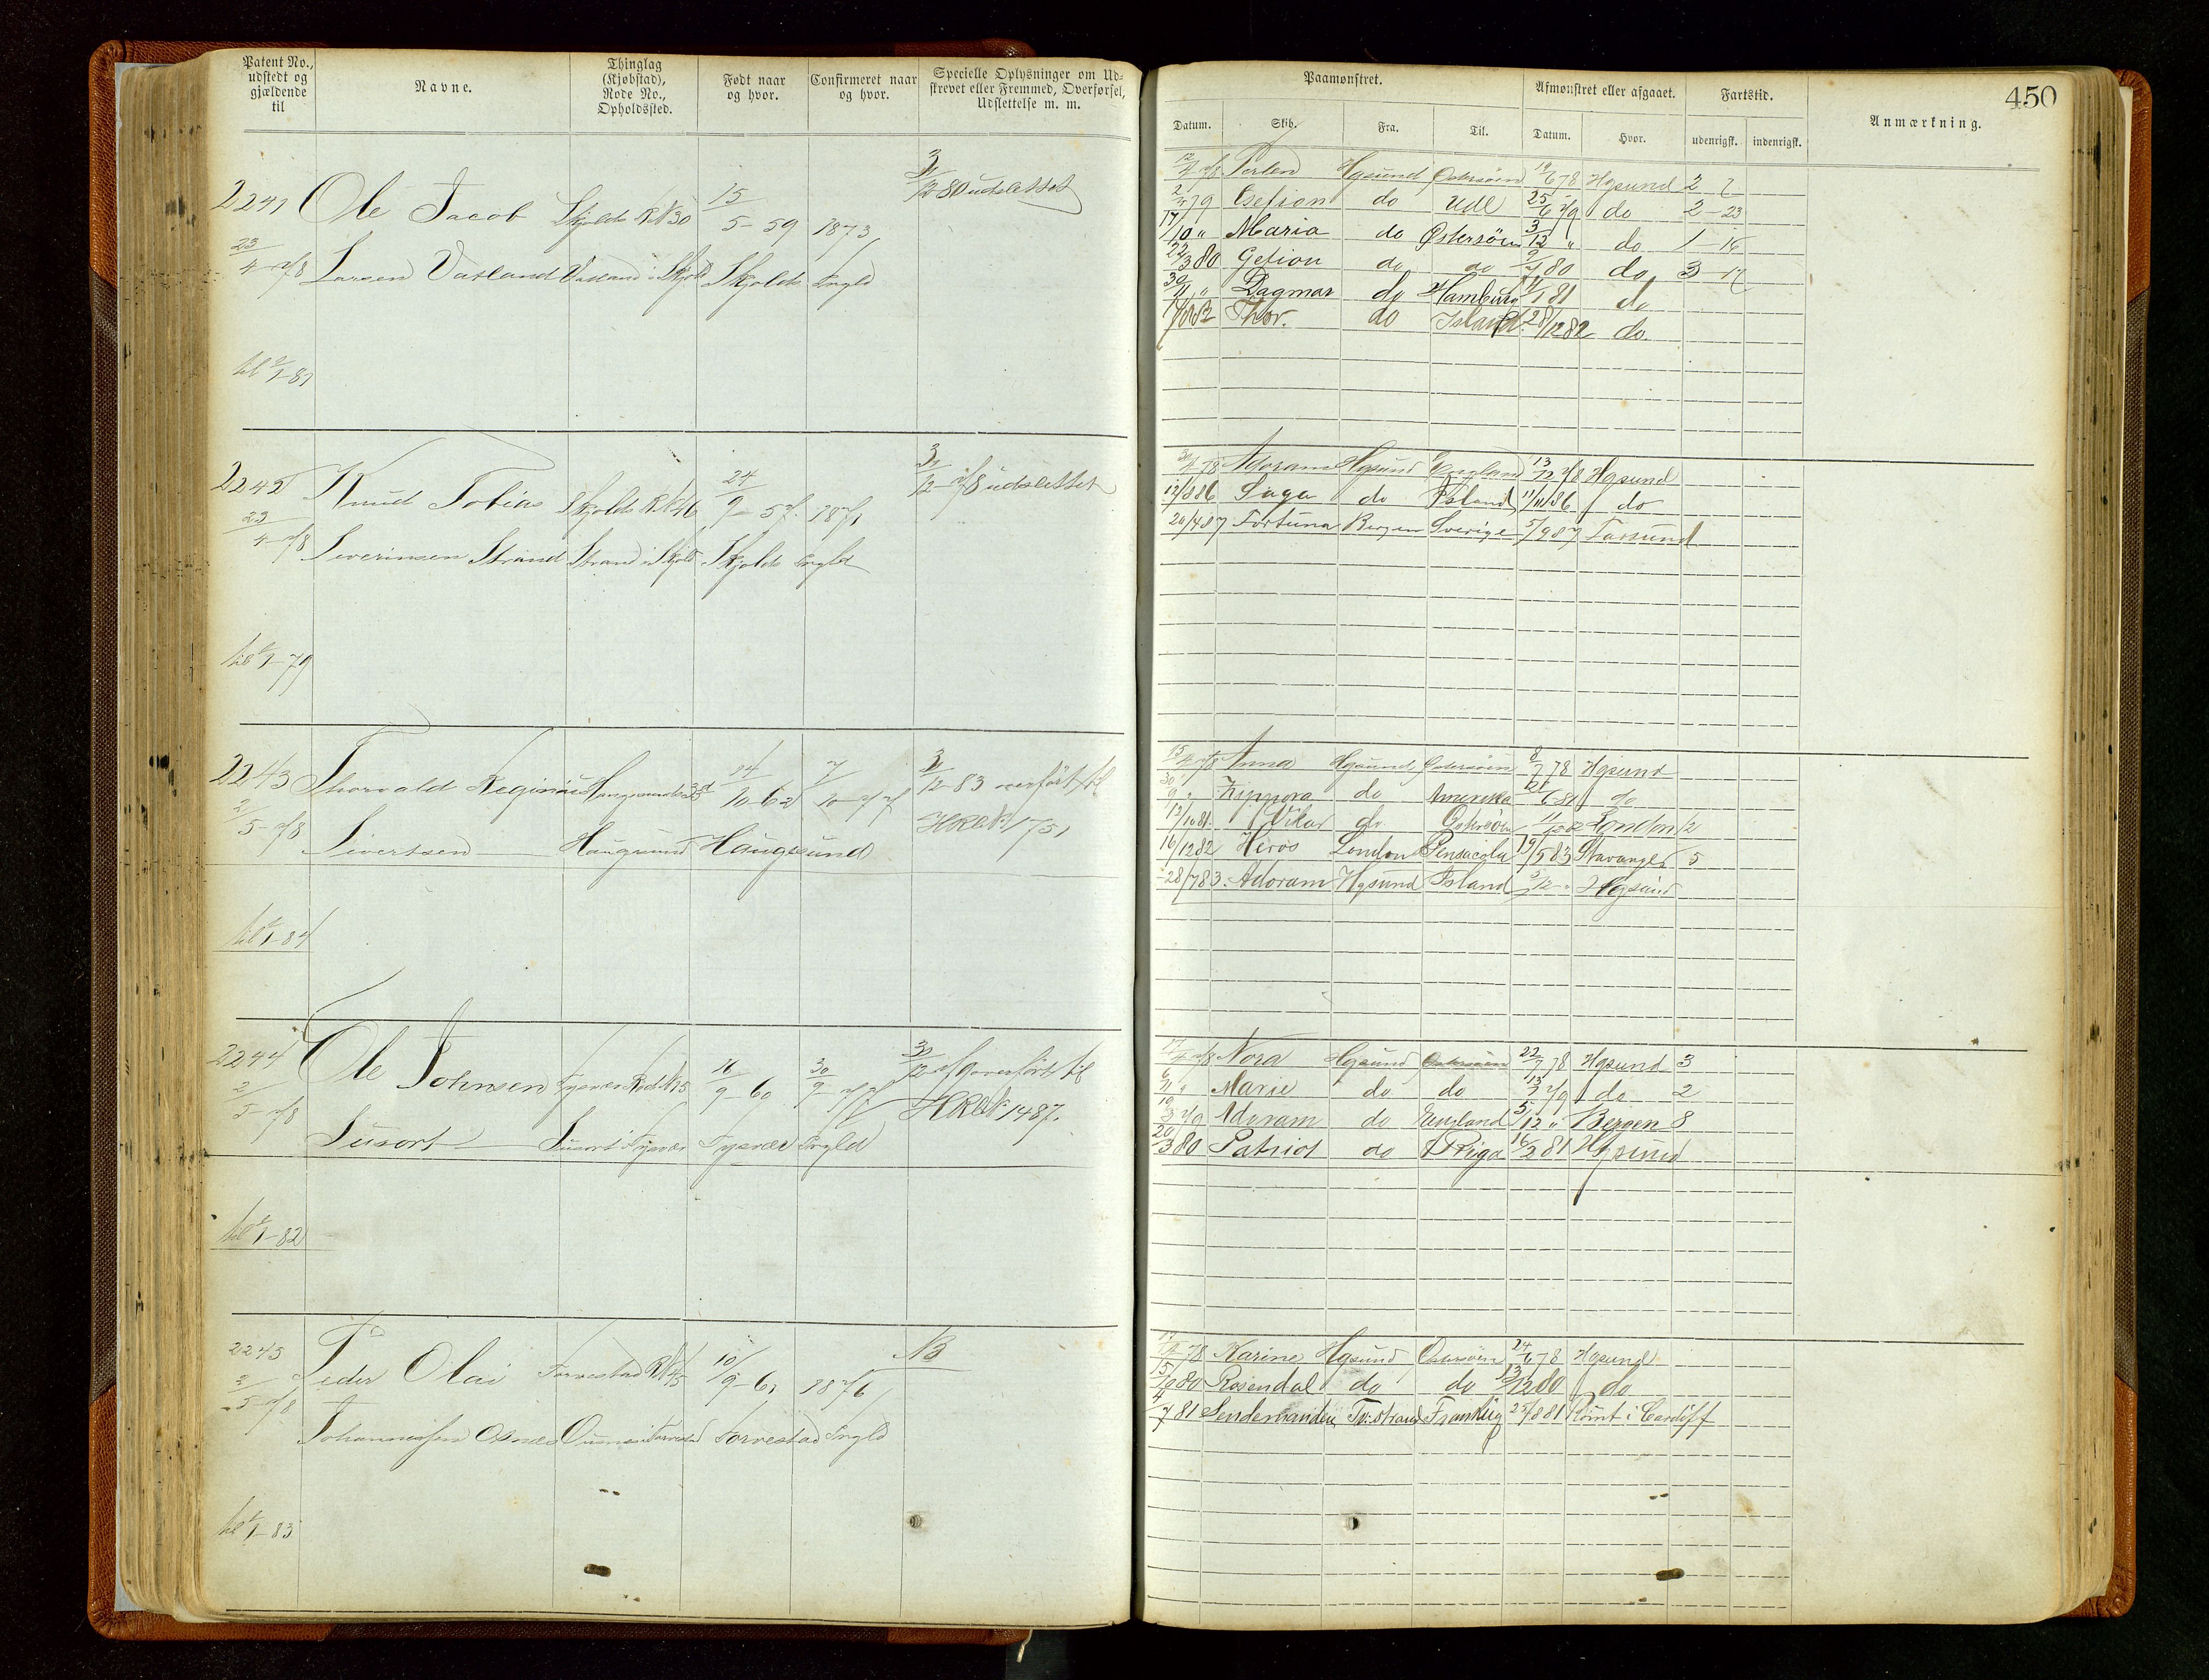 Patent No., udstedt og gjældende til
Navne.
Thinglag (Kjøbstad), Rode No., Opholdssted.
Født naar og hvor.
Confirmeret naar og hvor.
Specielle Oplysninger om Udskrevet eller Fremmed, Overførsel, Udslettelse m. m.
2241 Ole Jacob Skjolds R№30 15/5-59 1873, 31/12-80 udslettet
23/4-78 Larsen Vatland Vatland i Skjold Skjolds Sngld
til 1/1-81
2242 Knud Tobias Skjolds R№46 24/9-57. 1871 31/12-78 udslettet
23/4-78 Severinsen Strand Strand i Skjold Skjolds Sngld
til 1/1-79
2243 Thorvald Reginius Haugesunds 14/10-62 7/10-77 31/12-83 overført til
2/5-78 Sivertsen Haugesund Haugesund HRul№ 1751
til 1/1-84
2244 Ole Johnsen Tysvær Rd№15 16/9-60 30/9-77 31/12-79 overført til
2/5-78 Susort Susort i Tysvær Tysvær Sngld HRul№ 1487.
til 1/1-82
2245 Peder Olai Torvestad R№45 10/9-61 1876
2/5-78 Johannessen Osnes Torvestad Sngld
til 1/1-83
450
Paamønstret.
Afmønstret eller afgaaet.
Fartstid.
Anmærkning.
Datum. Skib. Fra. Til. Datum. Hvor. udenrigsk. indenrigsk.
12/4 78 Perlen Hgsund Østersøen 19/6 78 Hgsund 2 7
2/4 79 Gefion do Udl 25/6 79 do 2-23
17/10 " Maria do Østersøen 3/12 " do 1-16
22/3 80 Gefion do do 9/7 80 do 3-17
30/11 " Dagmar do Hamburg 11/1 81 do
Thor. do Island 28/12 82 do.
30/4 78 Adoram Hgsund England 13/12 78 Hgsund
12/8 86 Saga do Island 11/11 86 do
20/4 87 Fortuna Bergen Sverige 5/9 87 Farsund
15/4 78 Anna Hgsund Østersøen 8/7 78 Hgsund
30/9 " Zippora do Amerika 21/6 81 do
12/10 81. Vilar do Østersøen 11/12 82 London 12
16/12 82 Heros London Pensacola 19/5 83 Stavanger 5
28/7 83. Adoram Hgsund Island 3/12 " Hgsund
17/4 78 Nora Hgsund Østersøen 22/7 78 Hgsund 3
6/11 " Marie do do 13/1 79 do 2
19/3 79 Adoram do England 5/12 " Bergen 8
20/3 80 Patriot do Riga 16/2 81 Hgsund
17/4 78 Karine Hgsund Østersøen 24/6 78 Hgsund
15/10 80 Rosendal do do 13/12 80 do
4/7 81 Sendemanden Tvistrand Frankrig 25/8 81 Rømt i Cardiff